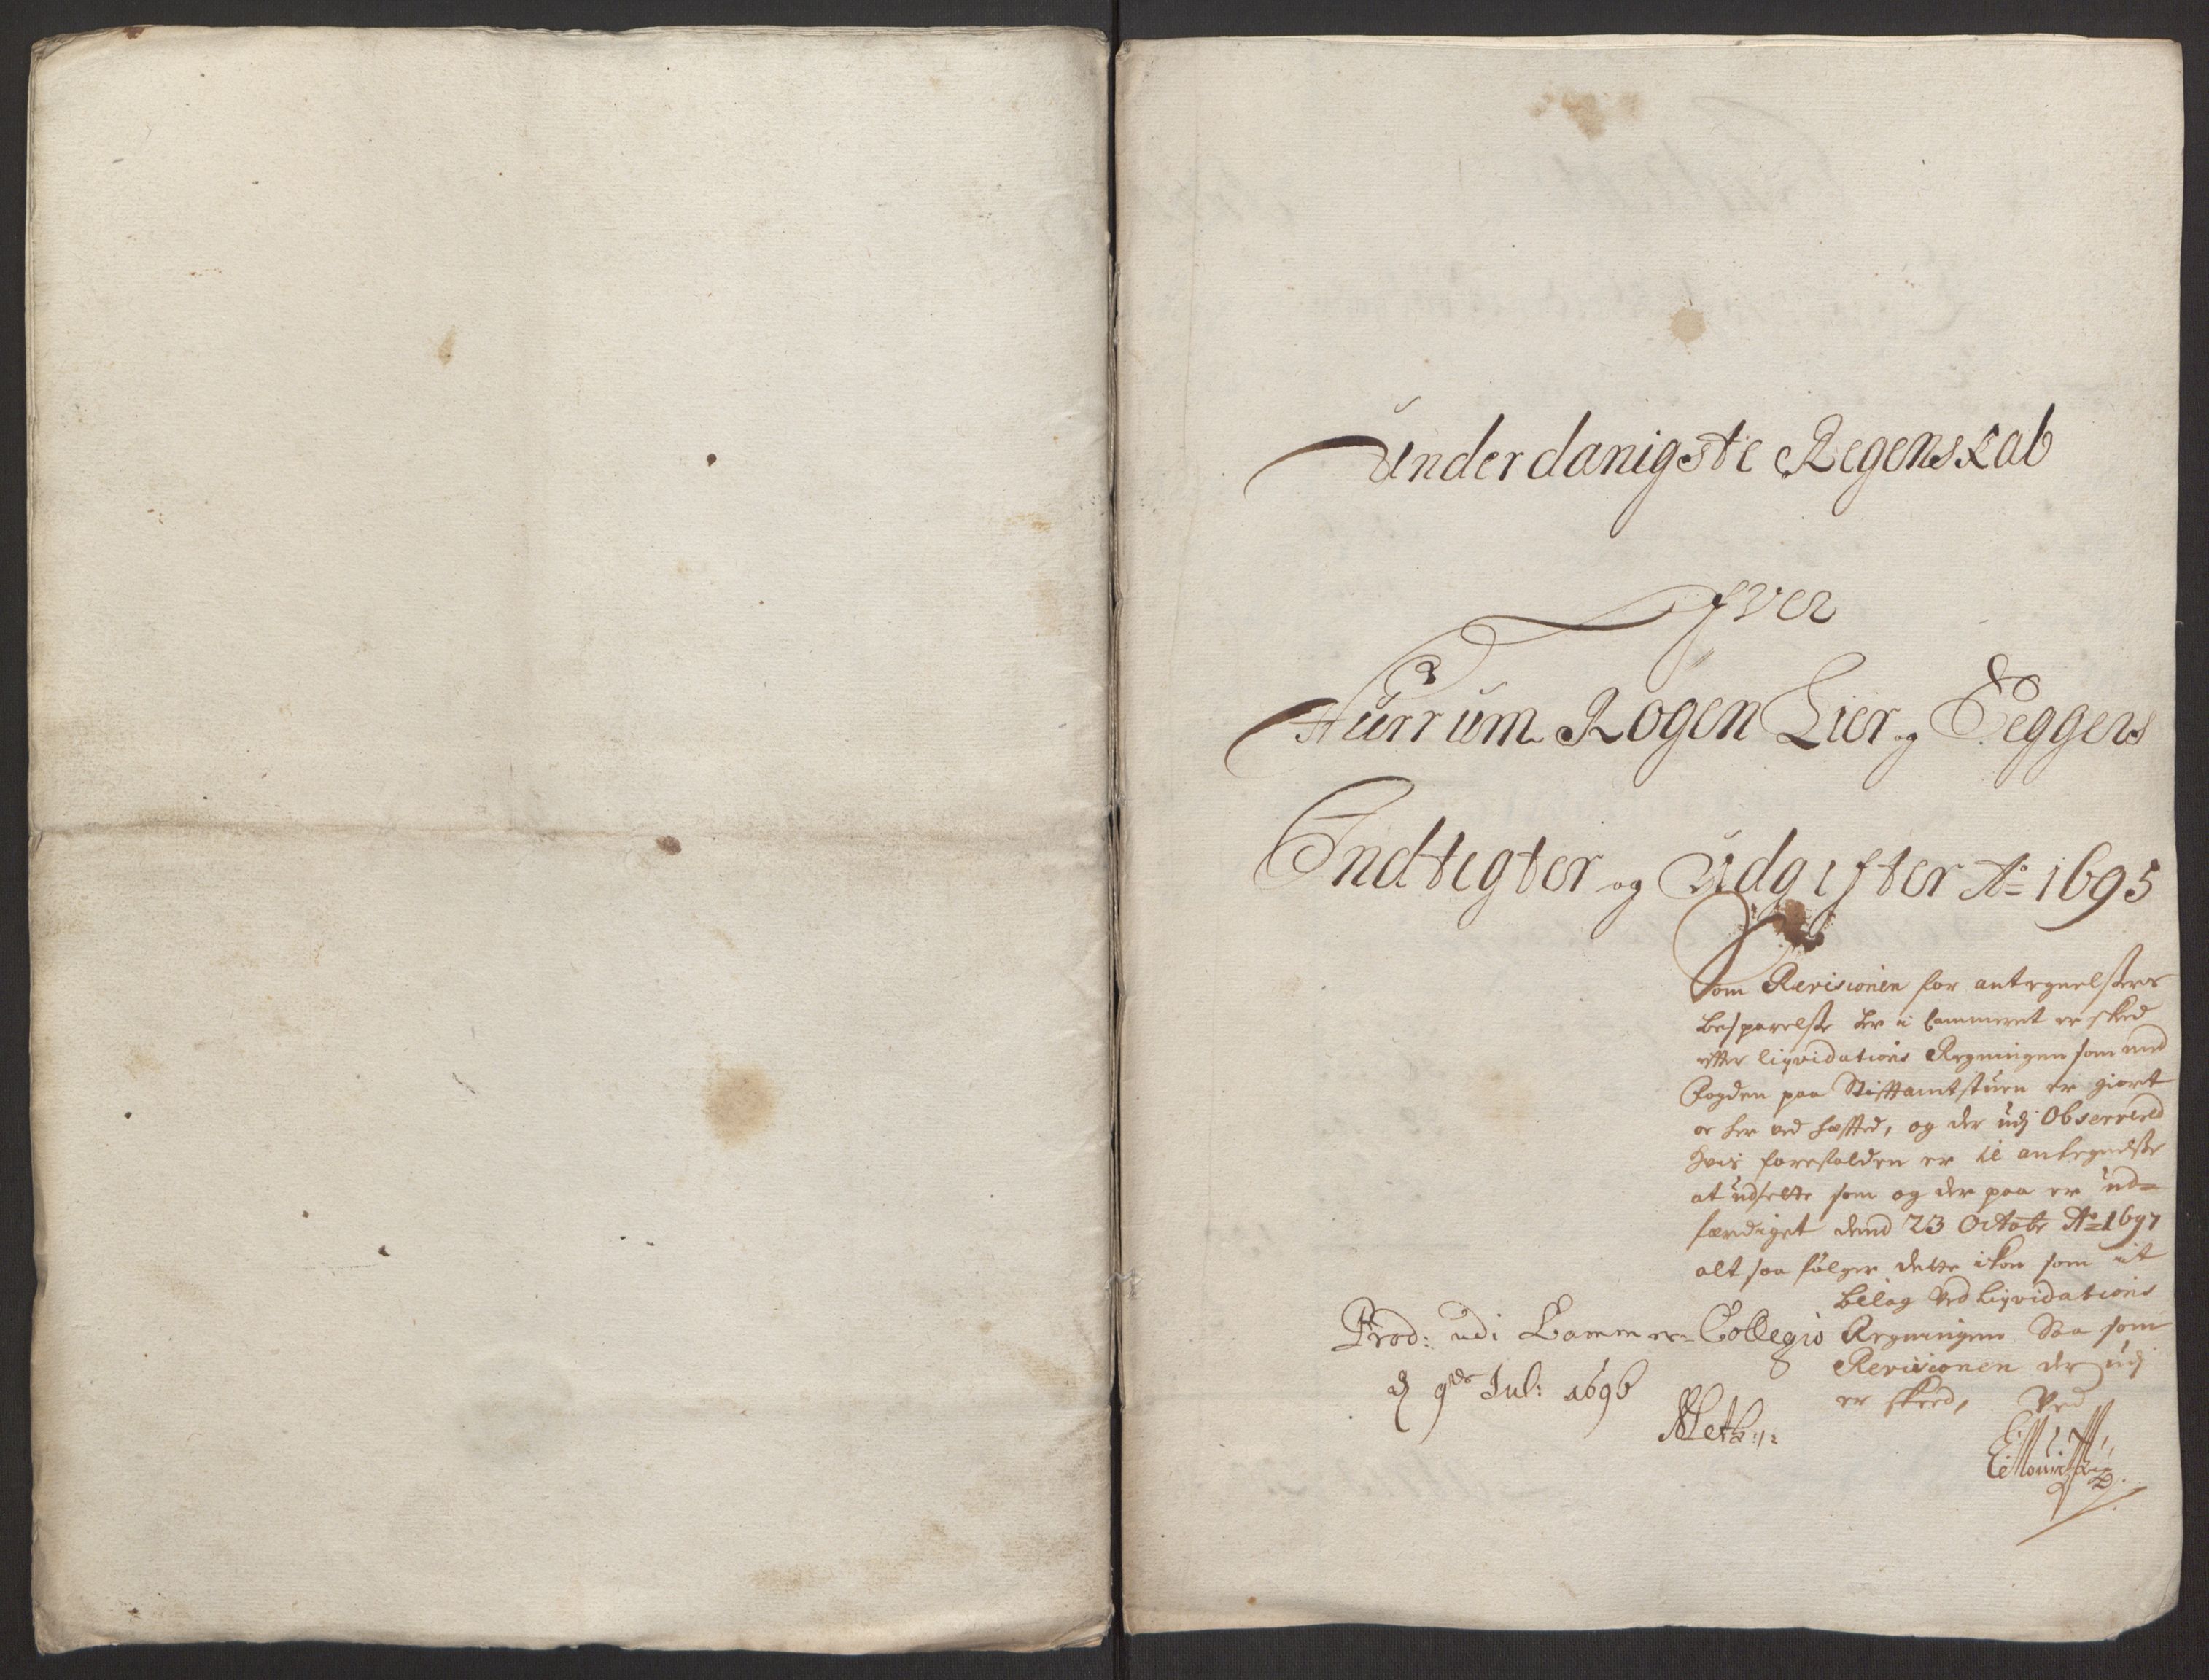 Underdanigste Regenskab
Ofver
Hurrum Rogen Lier og Eeggers
Indtegter og Udgifter Ao 1695
Som Revisionen for antegnelsters
besparelsse her i Cammeret er skeed
effter liqvidations Regningen som med
Fogden paa Stifftamtstuen er giort
oc her ved heffted, og der udj Observered
hvis forefalden er til antegnelsse
at udsette som og der paa er ud=
færdiget dend 23 Octobr Ao 1697
alt saa følger dette ickon som it
bilag ved liqvidations
Regningen Saa som
Revisionen der udj
er skeed, Ved
Prod: udi Cammer-Collegio
d 9de Jul: 1696